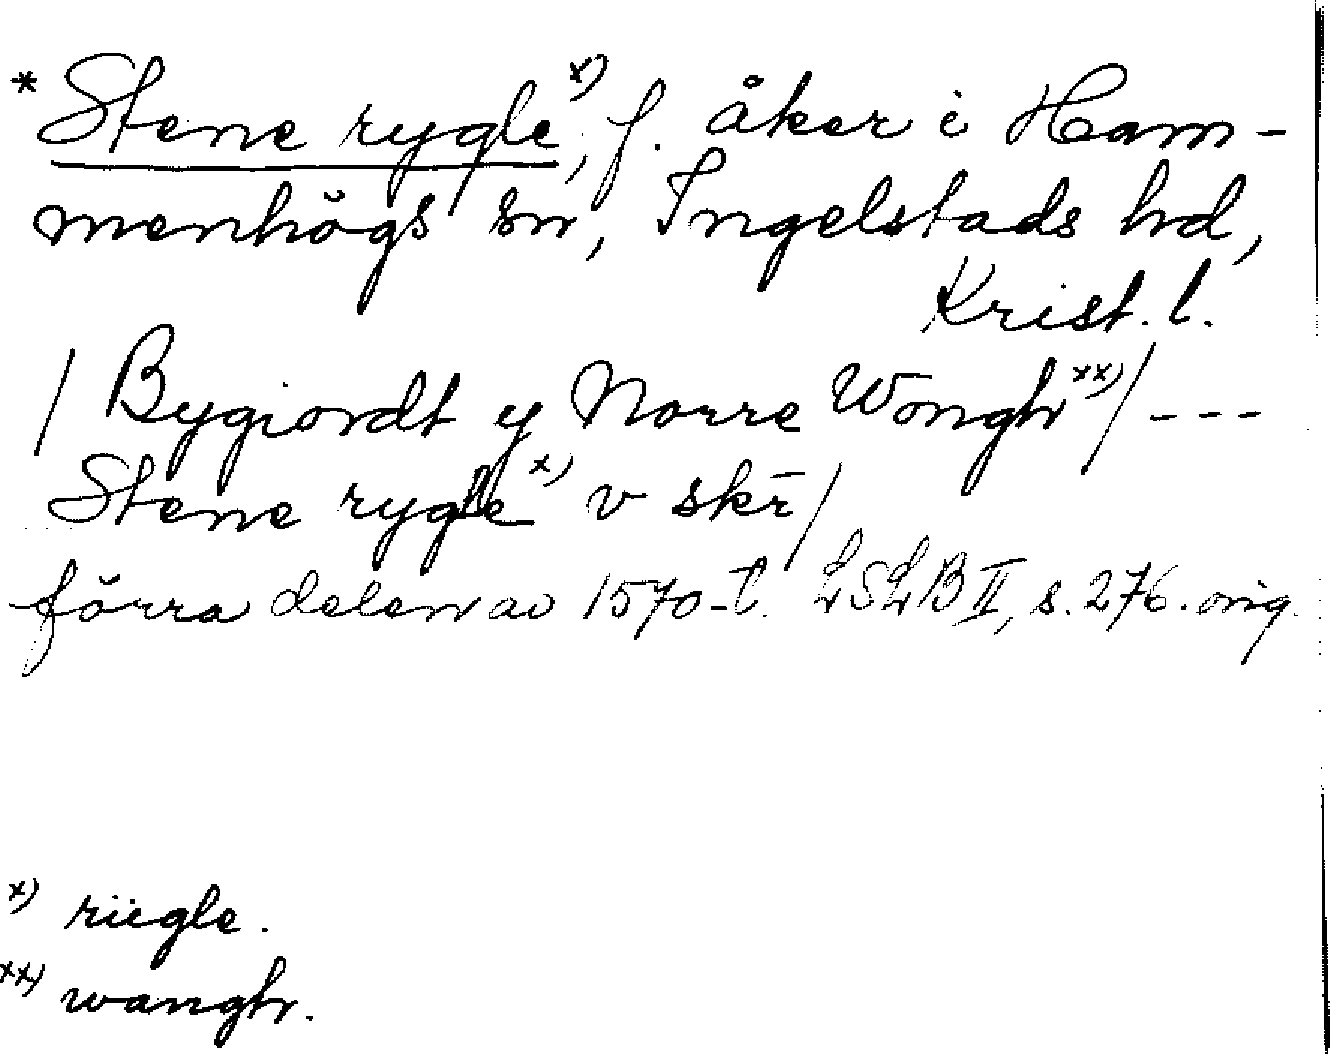 * Stene rygle x), f. åker i Ham-
menhögs sn, Ingelstads hd,
Krist. l.
/ Bygiordt y Norre Wongh xx) / ---
Stene rygle x) v skr̄ /
förra delen av 1570-t. LSLB II, s. 276. orig.
x) riiegle.
xx) wangh.